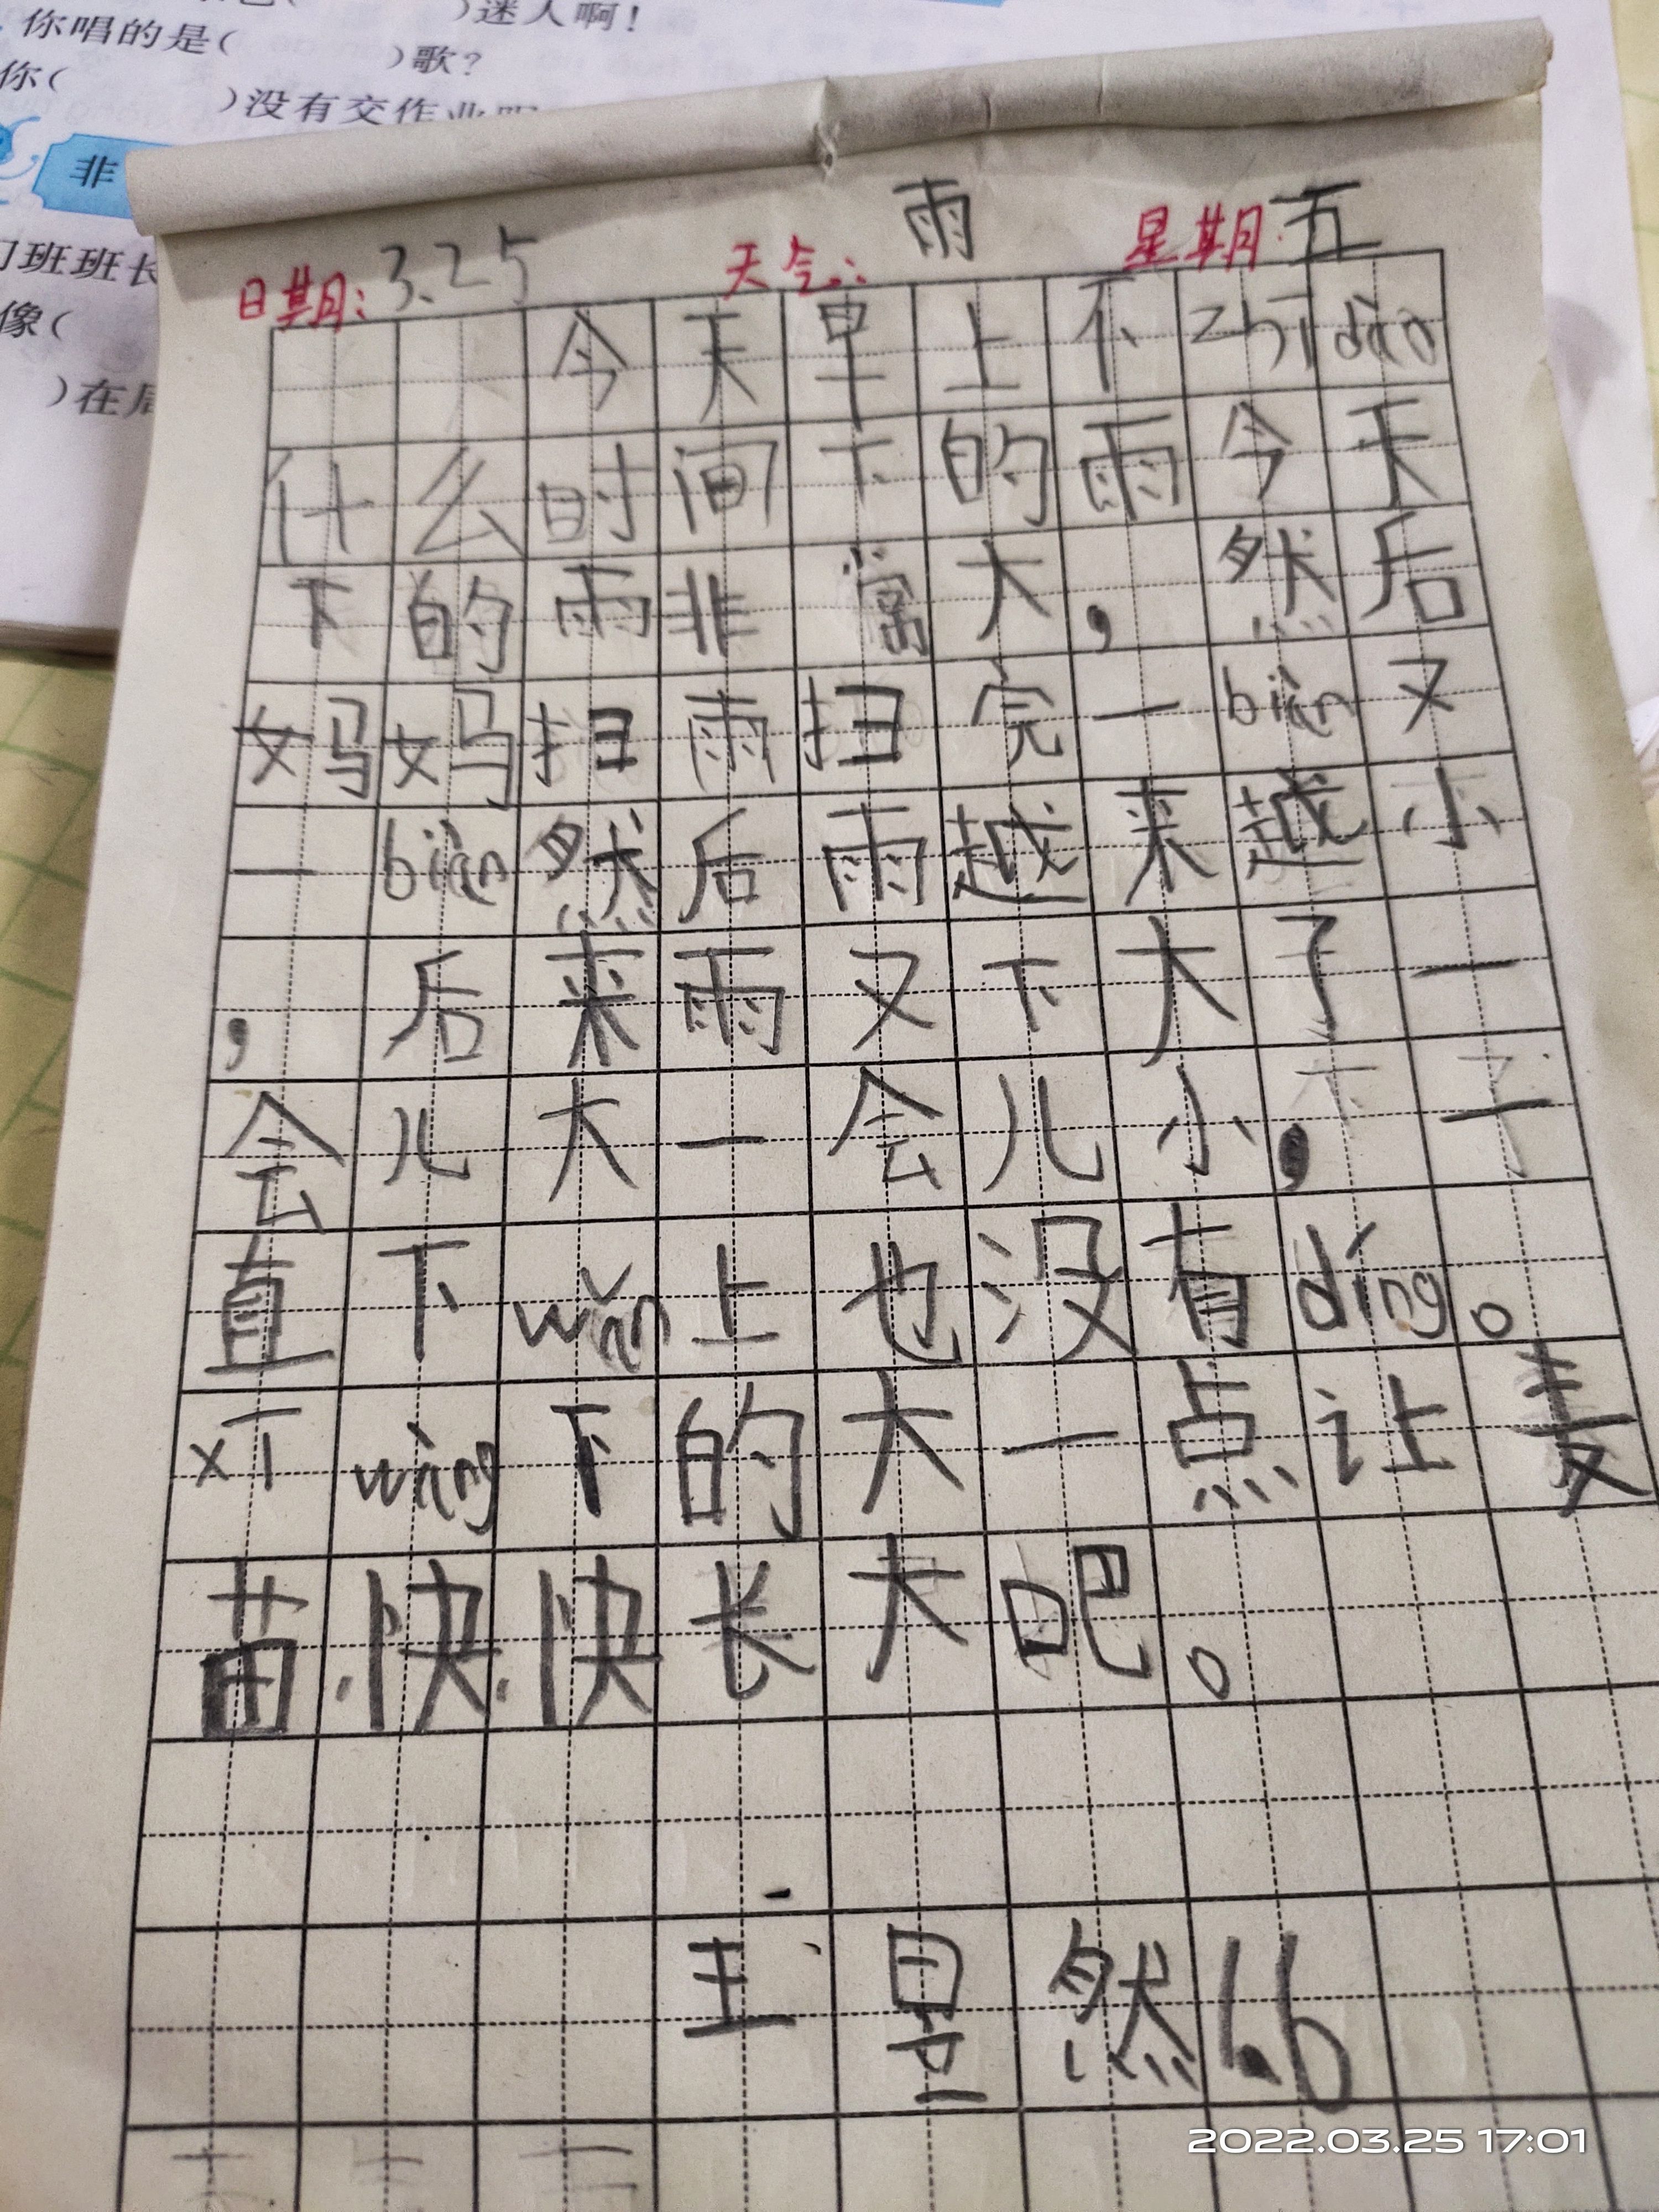 )迷人啊!
你唱的是( )歌?
你( )没有交作业
非
班班长
像(
)在
日期:3.25 天气:雨 星期五
今天早上不 dào
什么时间下的雨今天
下的雨非常大,然后
妈妈扫雨扫完一biàn又
一biàn然后雨越来越小
,后来雨又下大了一
会儿大一会儿小,一
直下wǎn上也没有díng。
wàng下的大一点让麦
苗快快长大吧。
王 然 1.6
2022.03.25 17:01